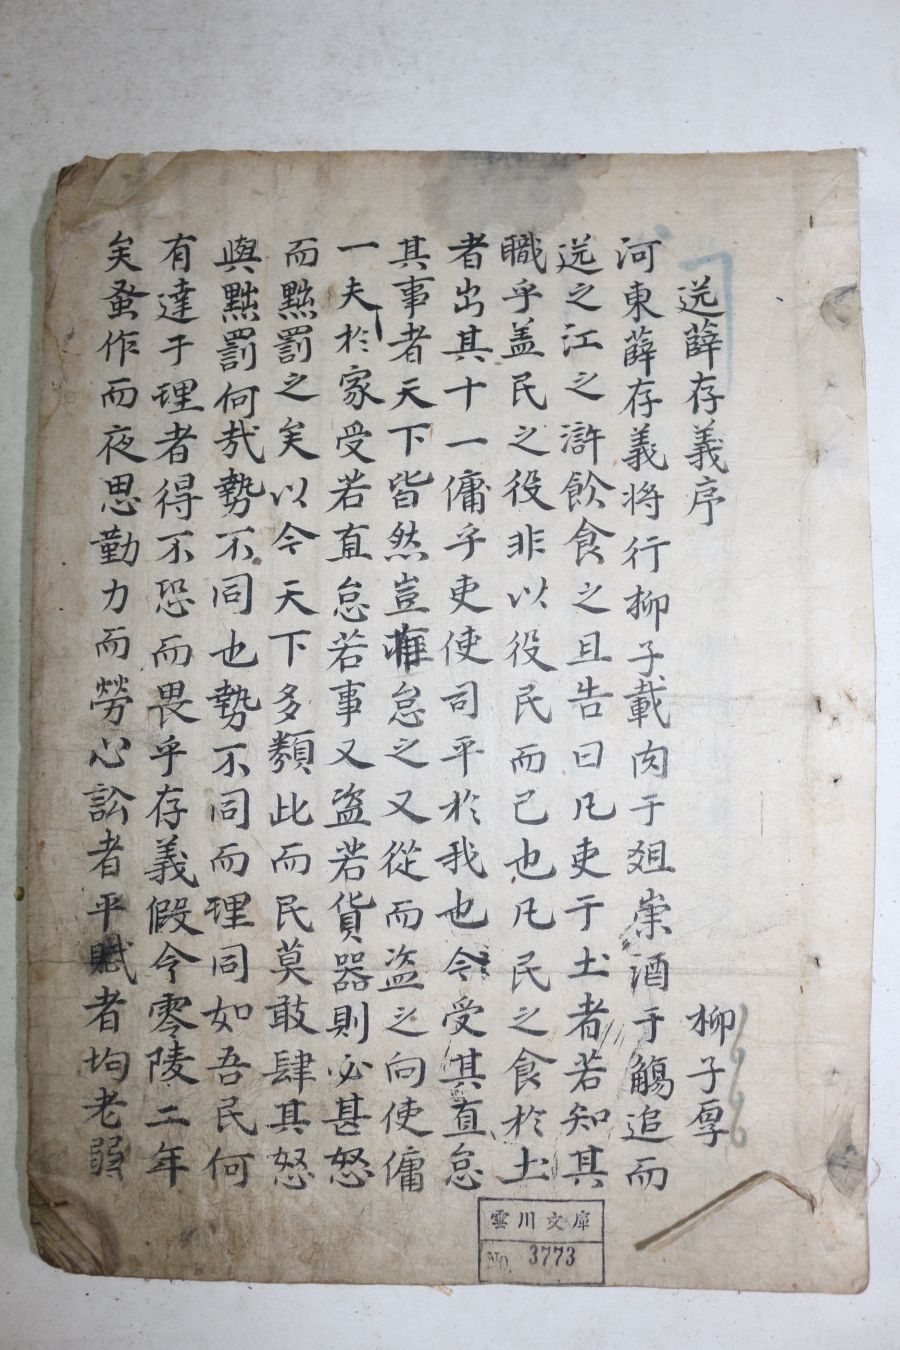 送薛存義序 柳子厚
河東薛存義將行柳子載肉于俎崇酒于觴追而
送之江之滸飲食之且告曰凡吏于土者若知其
職乎盖民之役非以役民而已也凡民之食於土
者出其十一傭乎吏使司平於我也今受其直怠
其事者天下皆然豈惟怠之又從而盗之向使傭
一夫於家受若直怠若事又盗若貨器則必甚怒
而黜罰之矣以今天下多類此而民莫敢肆其怒
與黜罰何哉勢不同也勢不同而理同如吾民何
有達于理者得不恐而畏乎存義假令零陵二年
矣蚤作而夜思勤力而勞心訟者平賦者均老弱
雲川文庫
No. 3773